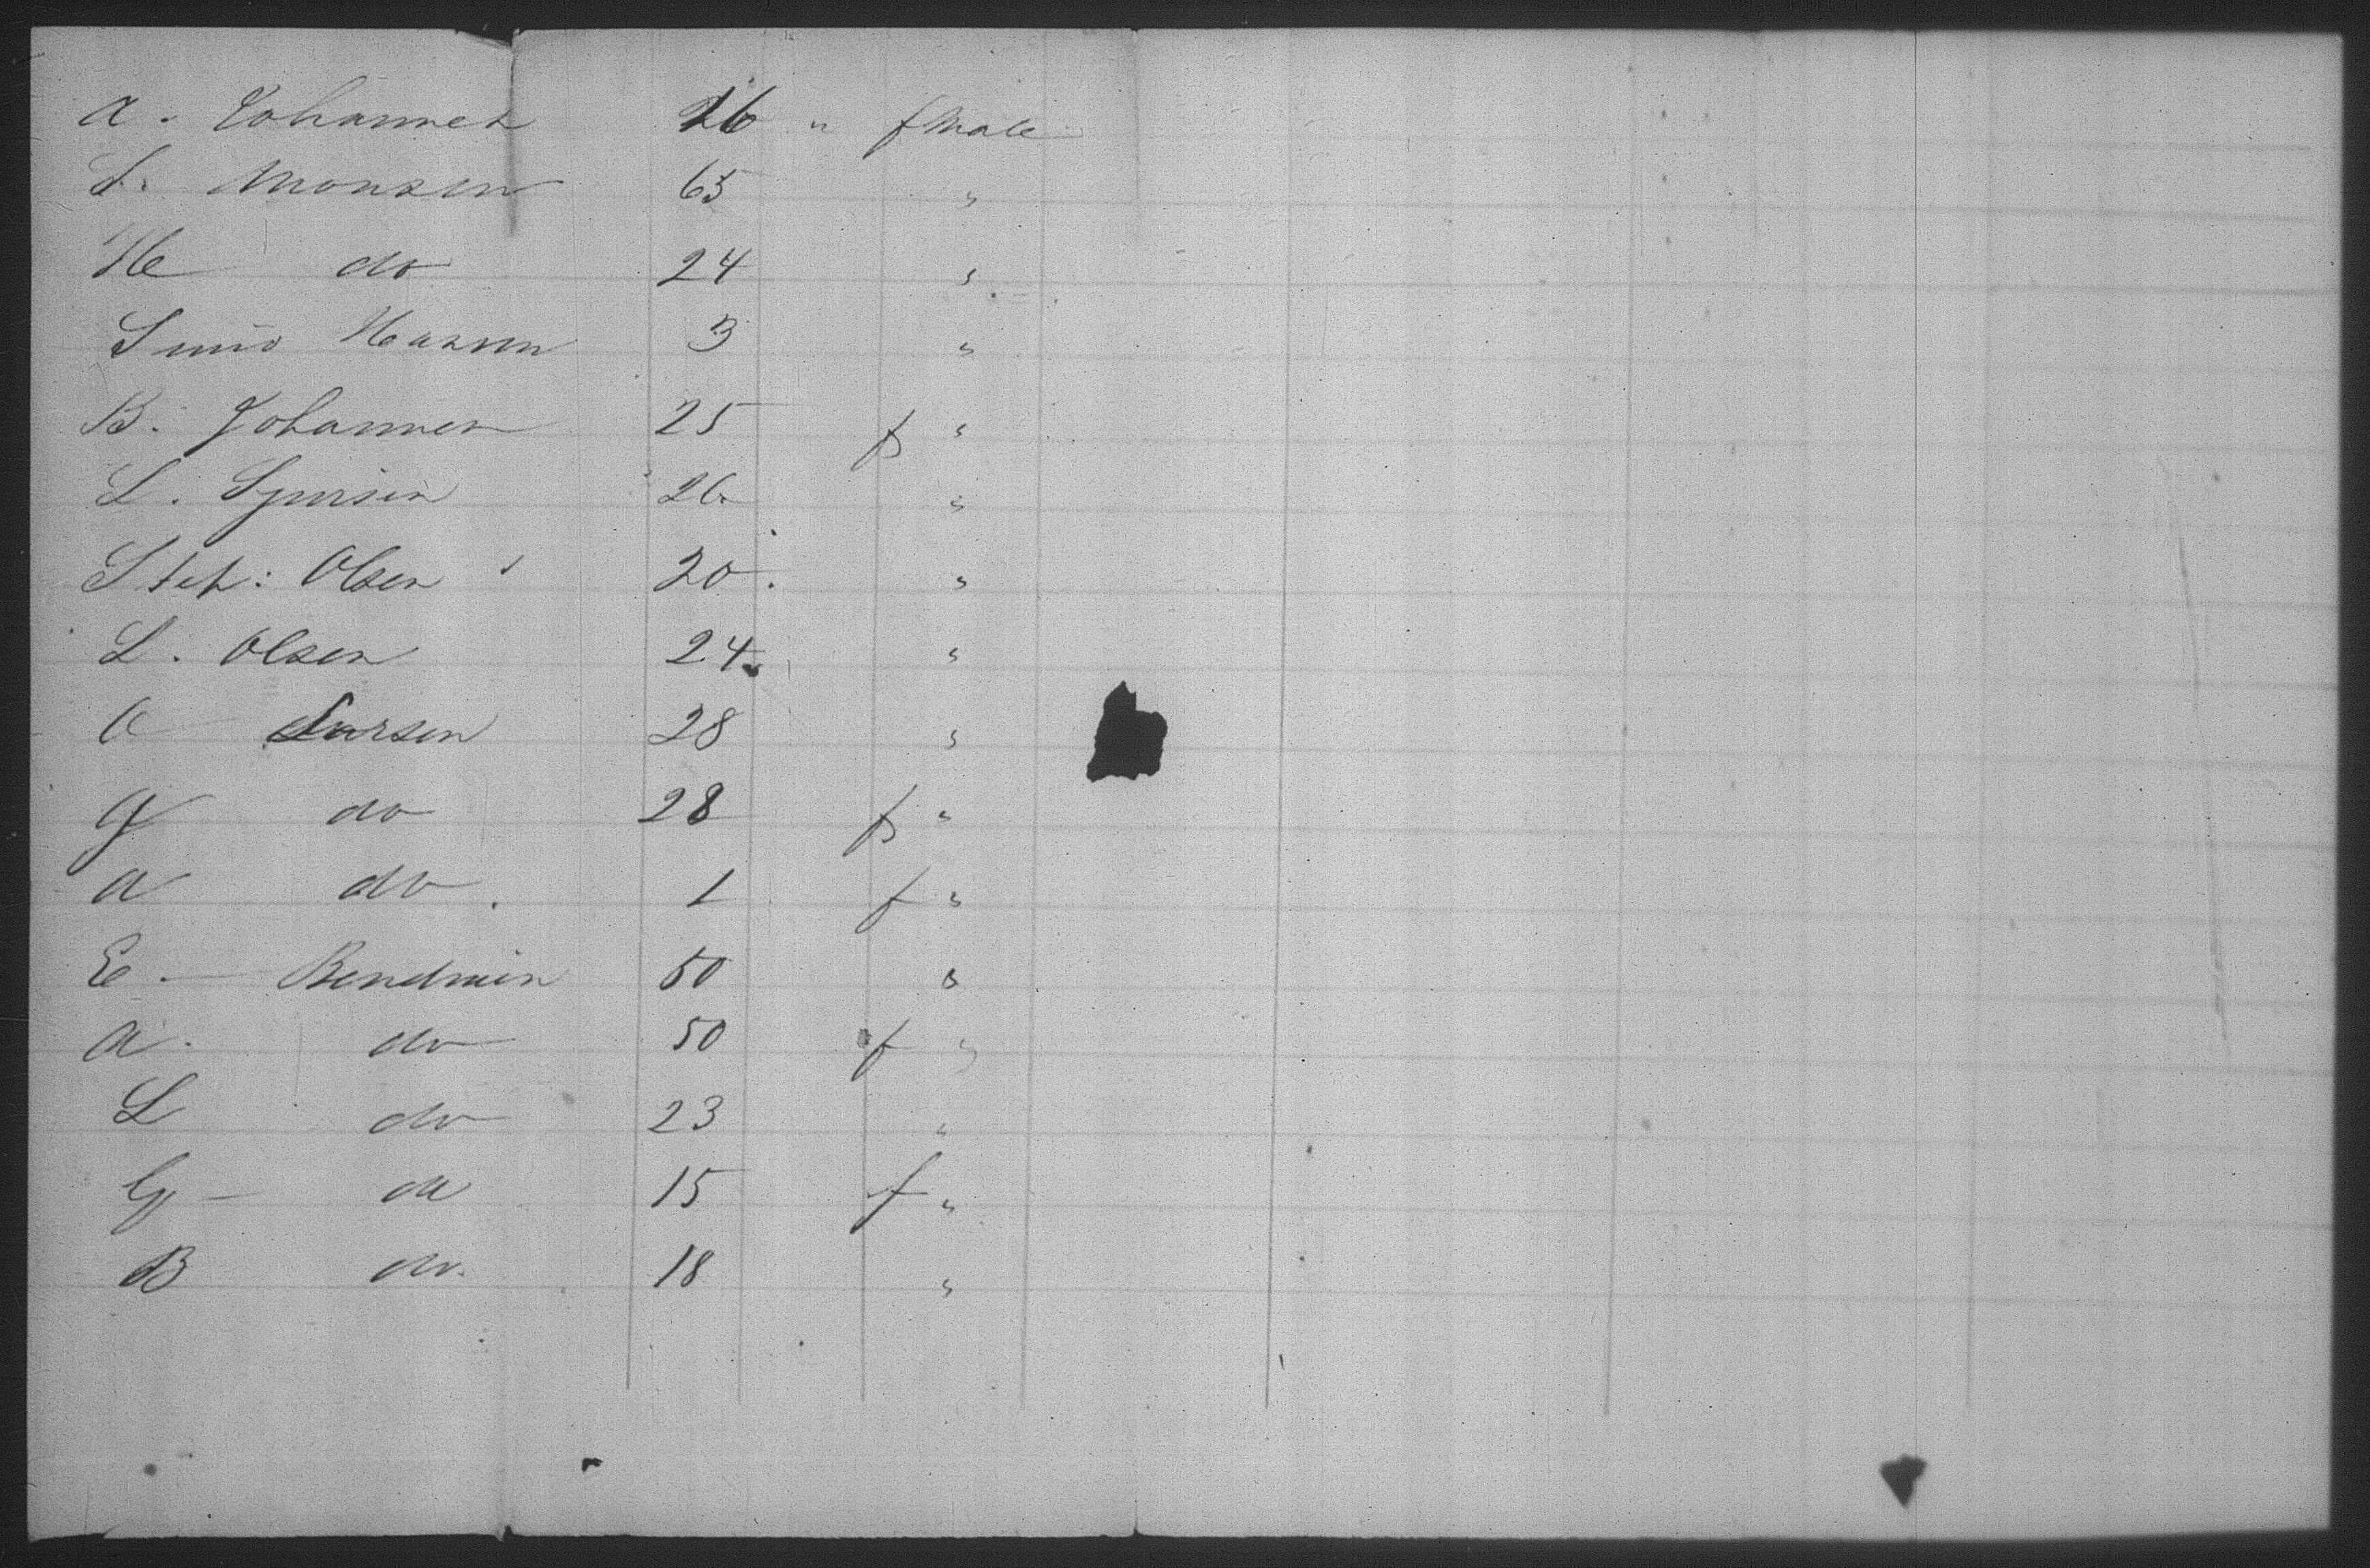 A. Johannes 26 " fMale
S. Monsen 65 "
He do 24 "
Hansen 3 "
B. Johannes 25 f "
L. 26 "
Steh: Olsen 20. "
L. Olsen 24. "
O Larsen 28 "
G do 28 f "
A do. 1 f "
E - Bendmin 50 "
A. do 50 f "
L do 23 "
G - do 15 f "
B do. 18 "